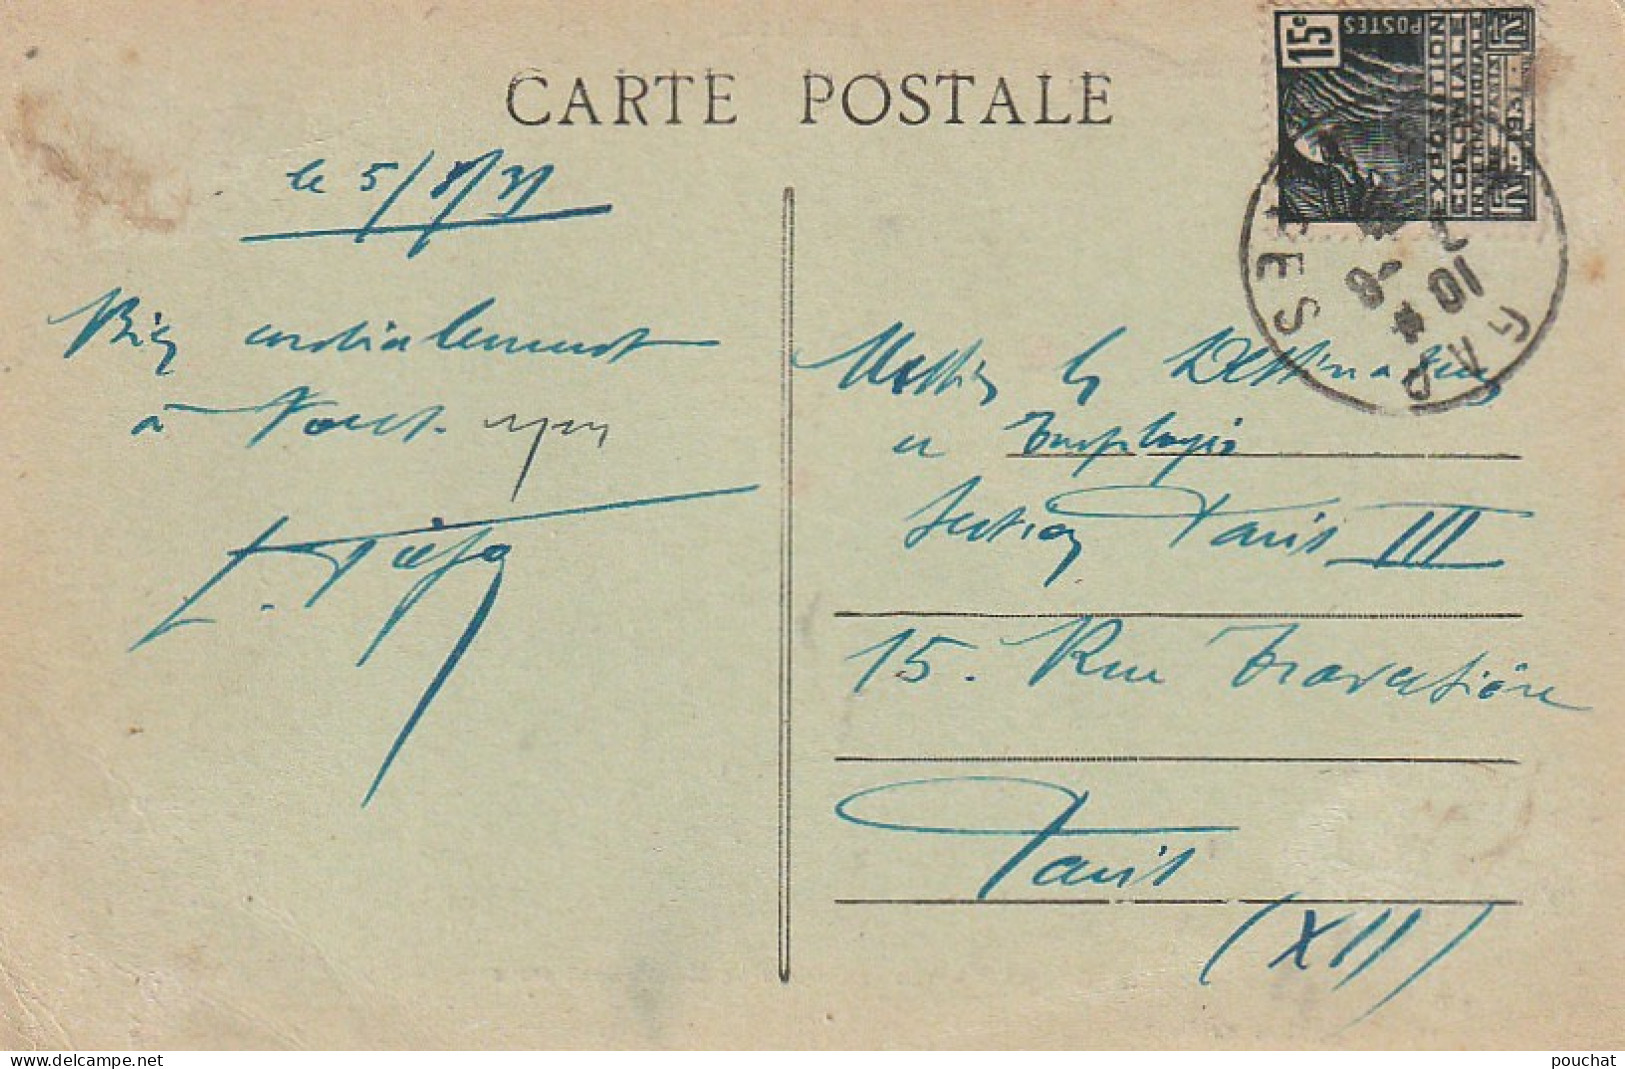 CARTE POSTALE
15c
POSTES
EXPOSITION
COLONIALE
INTERNATIONALE
PARIS
1931
GAP
10
8
ES
le 5/8/31
Bien cordialement
à Vous
Messieurs les Dessinateurs
et Employés
Section Paris III
15. Rue Traversière
Paris
(XII)
delcampe.net
pouchat